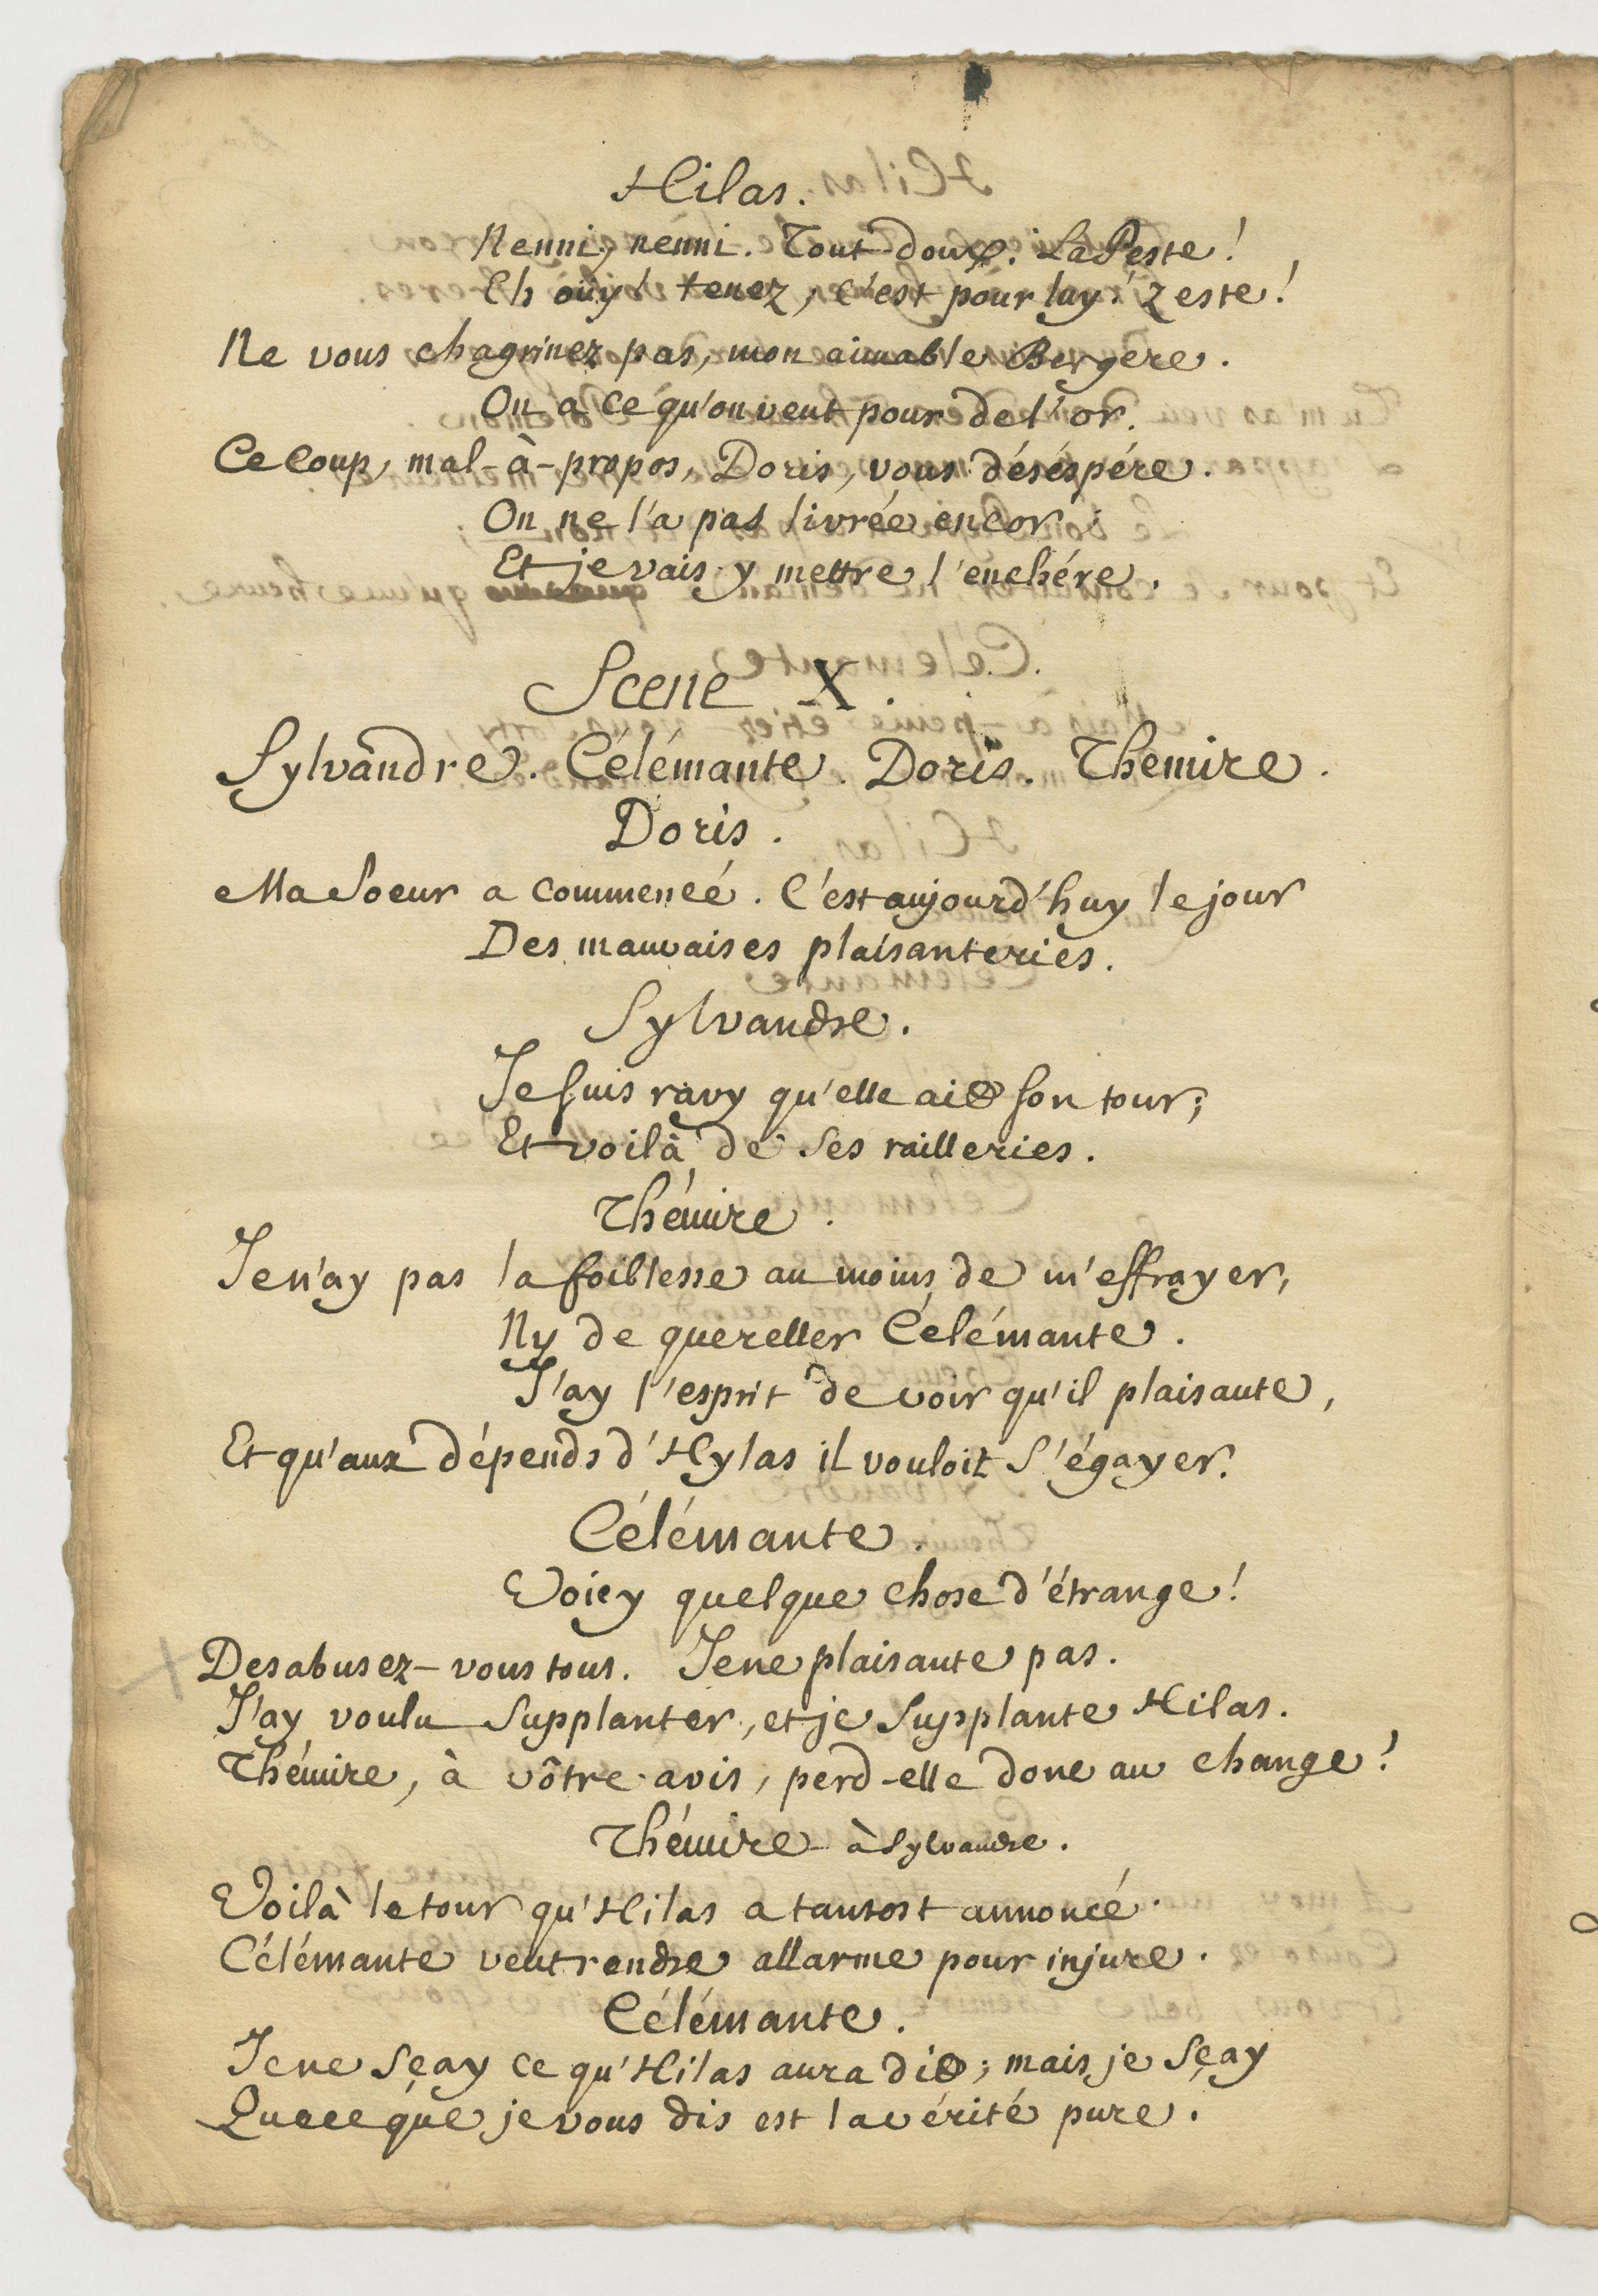 Hilas.
Nenni, nenni. Tout doux. La Peste!
Eh oüy! tenez, c'est pour luy! zeste!
Ne vous chagrinez pas, mon aimable Bergere.
On a ce qu'on veut pour de l'or.
Ce coup, mal-à-propos, Doris, vous déséspére.
On ne l'a pas livrée encor;
Et je vais y mettre l'enchére.
Scene X.
Sylvandre. Célémante. Doris. Themire.
Doris.
Ma Soeur a commencé. C'est aujourd'huy le jour
Des mauvaises plaisanteries.
Sylvandre.
Je suis ravy qu'elle ait son tour;
Et voilà de ses railleries.
Thémire.
Je n'ay pas la foiblesse au moins de m'effrayer,
Ny de quereller Célémante.
J'ay l'esprit de voir qu'il plaisante,
Et qu'aux dépends d'Hylas il vouloit s'égayer.
Célémante.
Voicy quelque chose d'étrange!
Desabusez-vous tous. Je ne plaisante pas.
J'ay voulu Supplanter, et je Supplante Hilas.
Thémire, à vôtre avis, perd-elle donc au change?
Thémire à Sylvandre.
Voilà le tour qu'Hilas a tantost annoncé.
Célémante veut rendre allarme pour injure.
Célémante.
Je ne sçay ce qu'Hilas aura dit; mais je sçay
Que ce que je vous dis est la vérité pure.